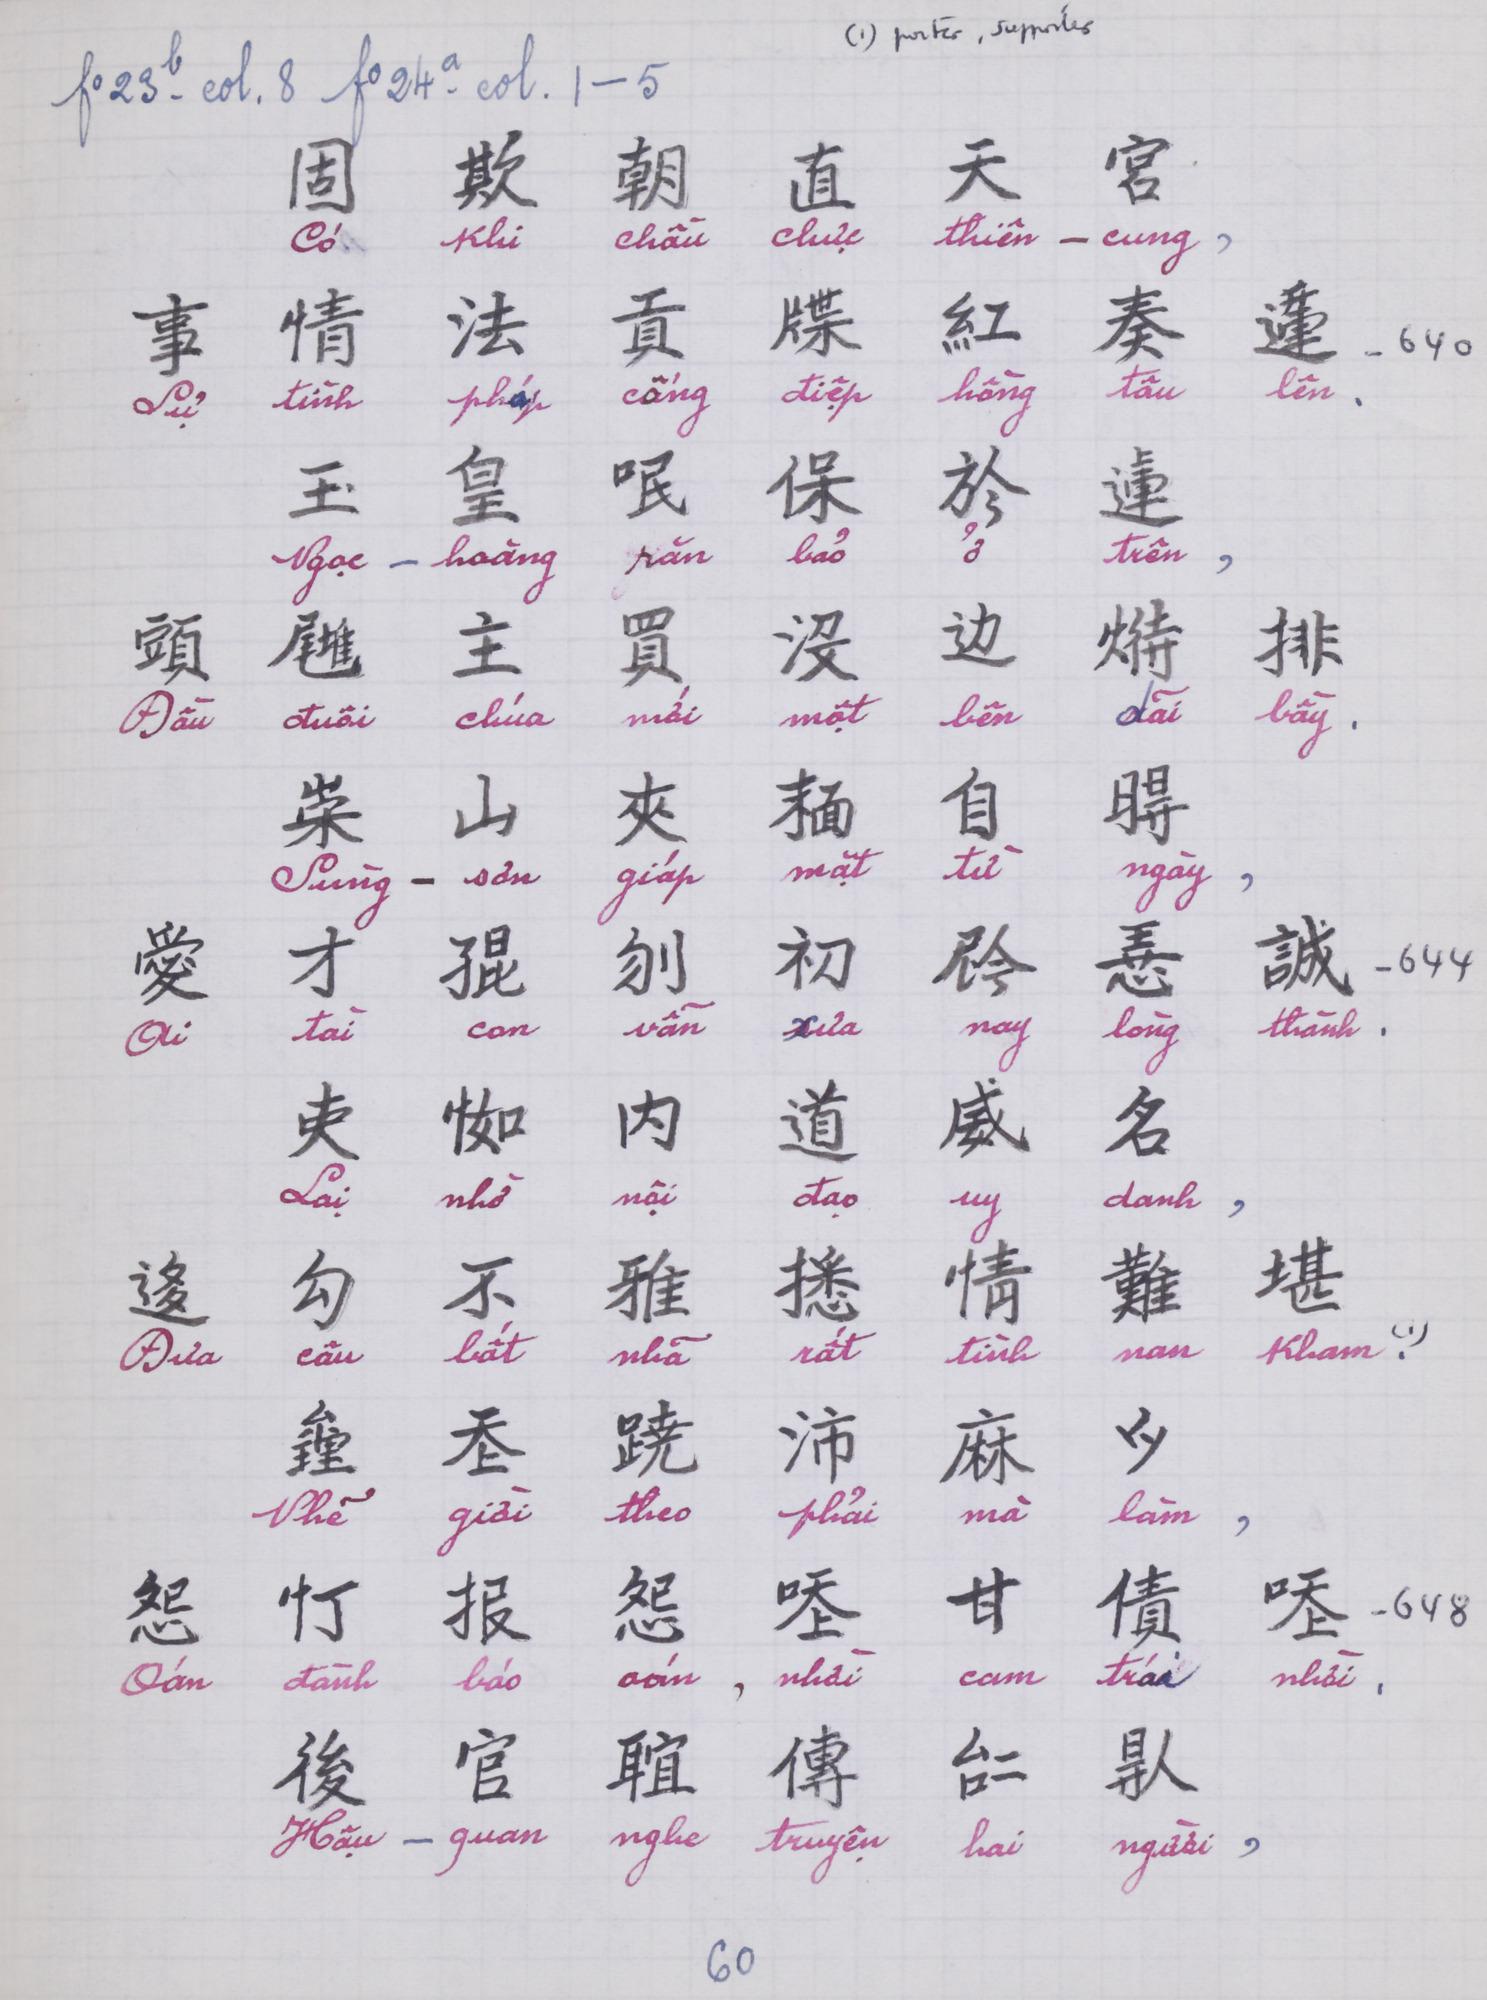 (1) porter, supporter
fº 23ᵇ- col. 8 fº 24ᵃ- col. 1-5
固 欺 朝 直 天 宮
Có khi chầu chực thiên - cung,
事 情 法 貢 牒 紅 奏 𨕭 -640
Sự tình pháp cống điệp hồng tâu lên.
玉 皇 呡 保 於 蓮
Ngọc - hoàng rắn bảo ở trên,
頭 主 買 沒 边 排
Đầu đuôi chúa mới một bên dãi bầy.
崇 山 夾 𩈘 自 𣈜
Sùng - sơn giáp mặt từ ngày,
愛 才 𡥵 刎 初 𫢩 𢚸 誠 -644
Ái tài con vẫn xưa nay lòng thành.
吏 𢘾 内 道 威 名
Lại nhờ nội đạo uy danh,
迻 勾 不 雅 情 難 堪
Đưa câu bất nhã rất tình nan kham.(1)
𡗶 蹺 沛 麻 𫜵
Nhẽ giời theo phải mà làm,
怨 忊 报 怨 甘 債 -648
Oán đành báo oán, nhời cam trái nhời.
後 官 𦖑 傳 𠄩 𠊛
Hậu - quan nghe truyện hai người,
60